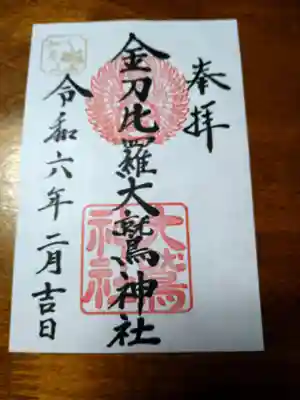 奉拝
金刀比羅大鷲神社
大鷲
神社
令和六年二月吉日